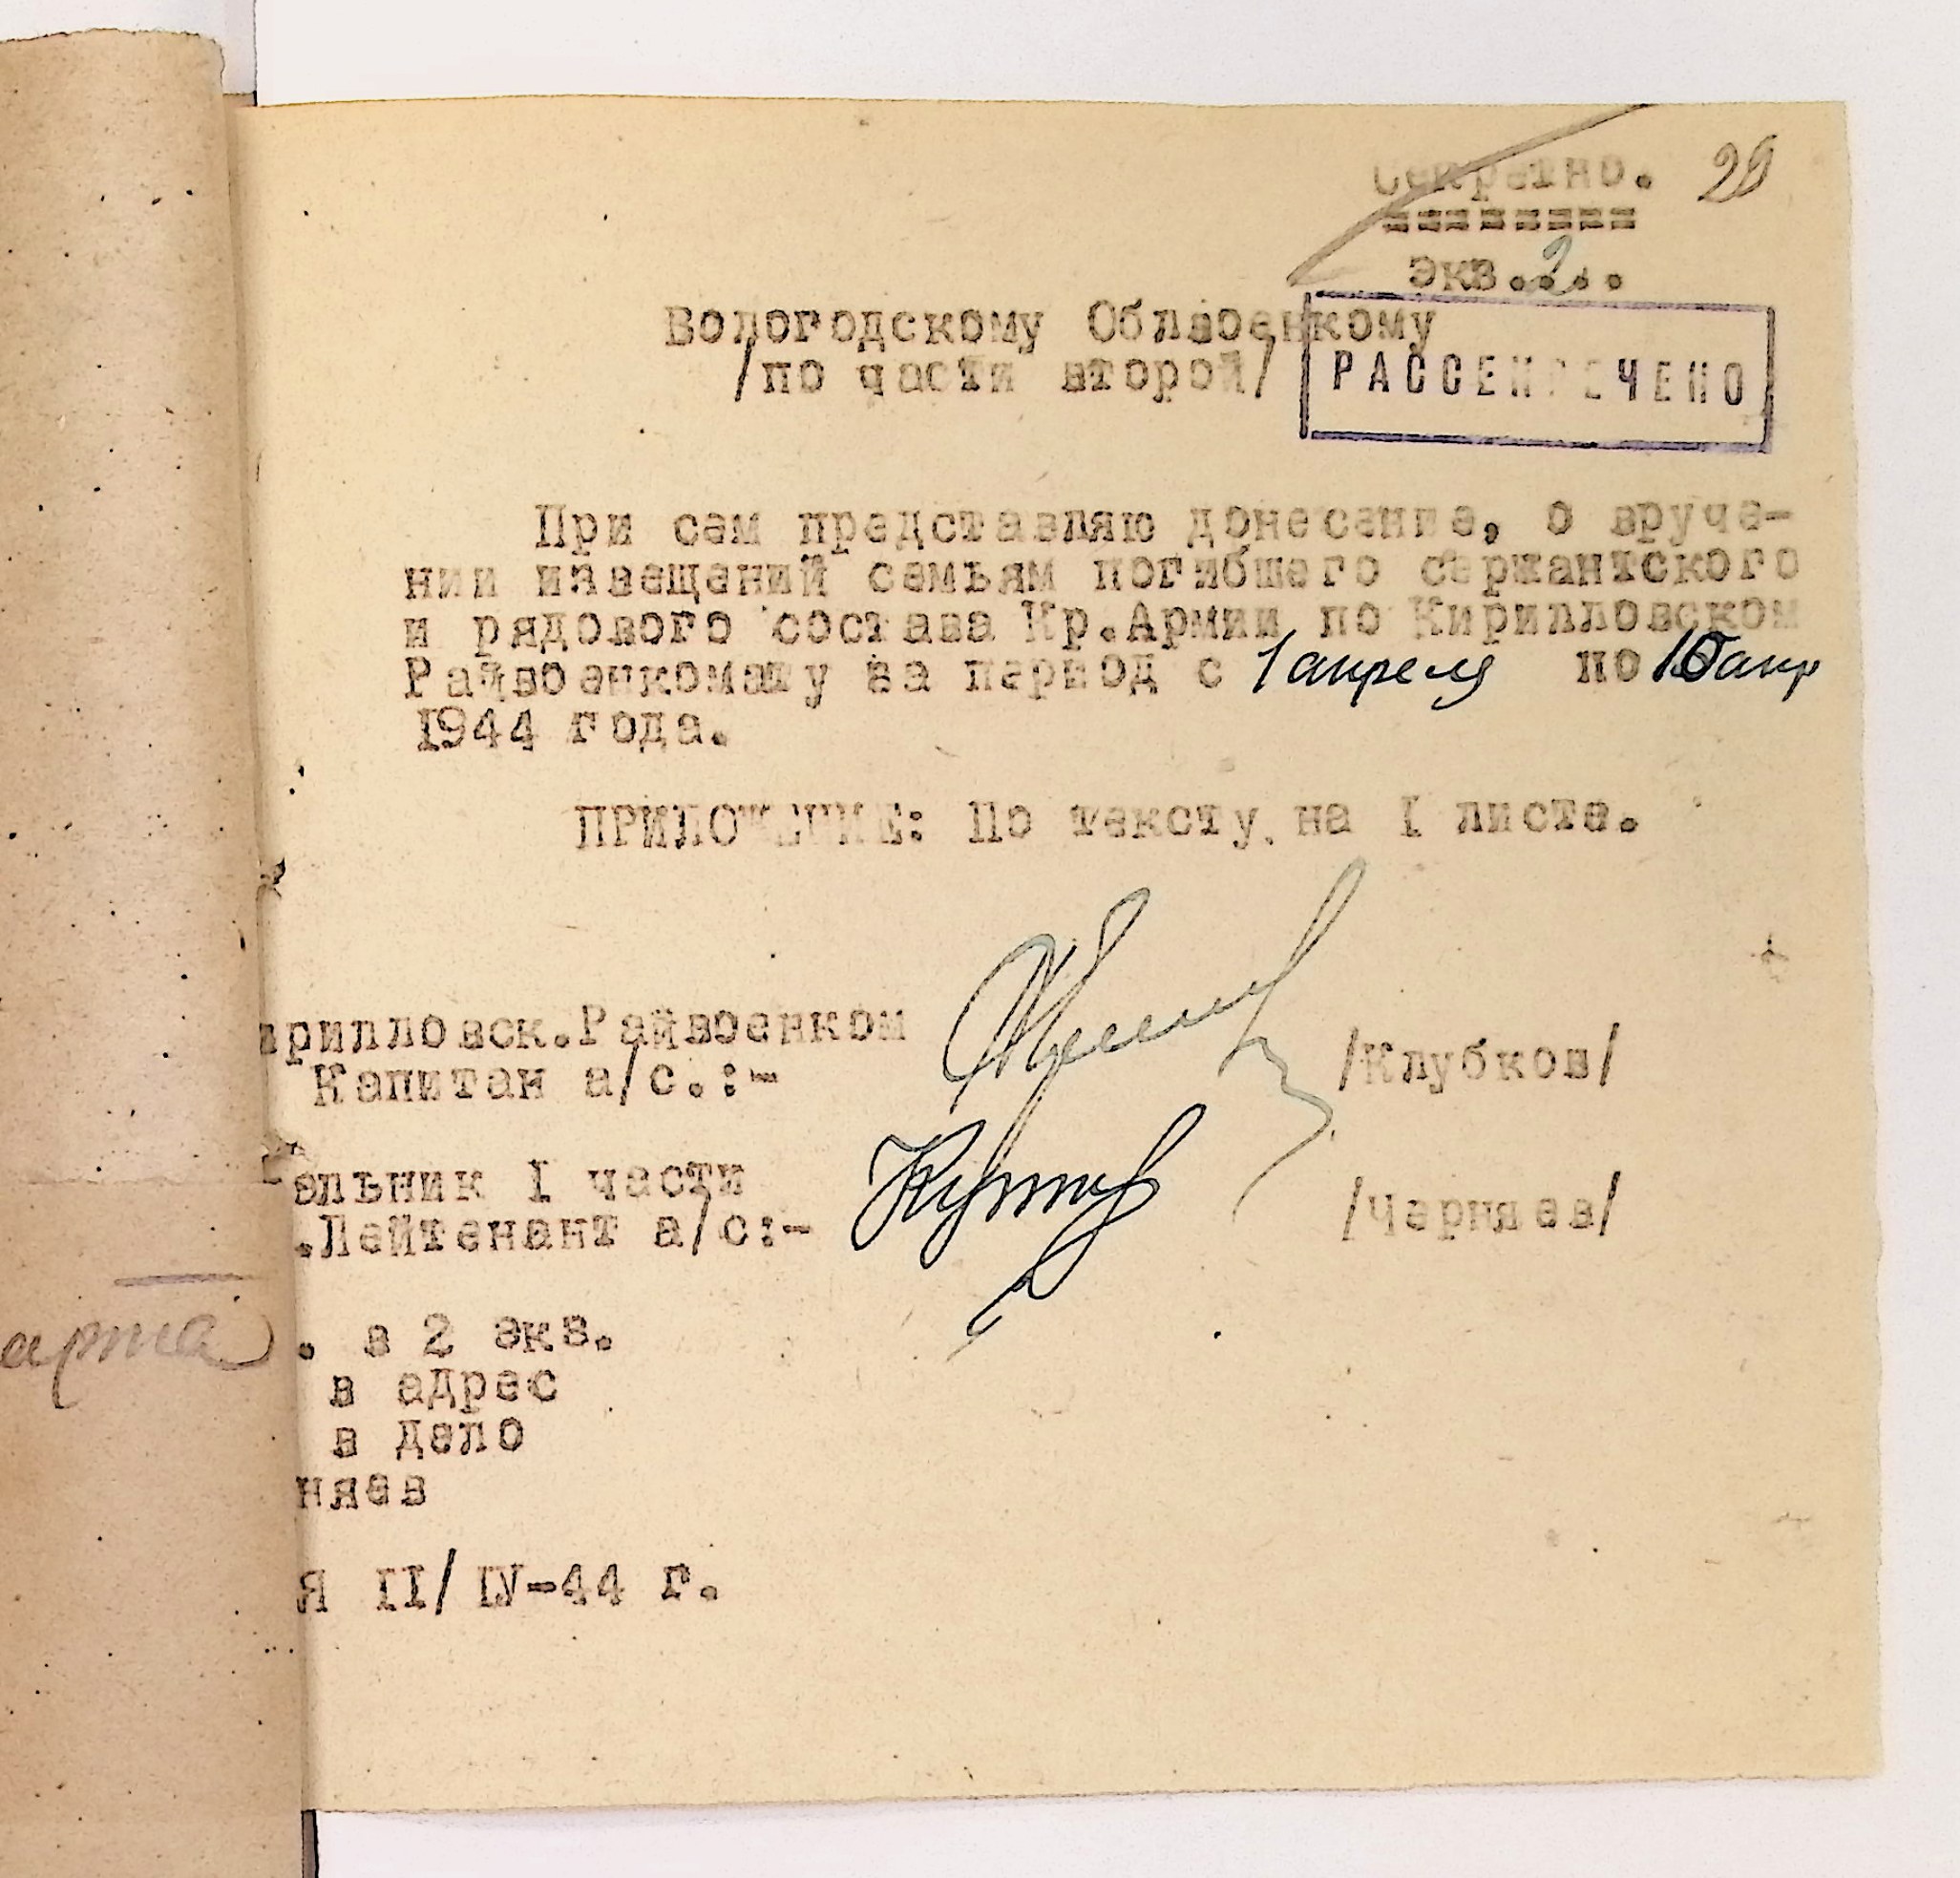 Секретно. 29
=========
экз..2..
Вологодскому Облвоенкому
/по части второй/
РАССЕКРЕЧЕНО
При сем представляю донесение, о вруче-
нии извещений семьям погибшего сержантского
и рядового состава Кр.Армии по Кирилловском
Райвоенкомату за период с 1 апреля по 10 апр
1944 года.
ПРИЛОЖЕНИЕ: По тексту на I листе.
ирилловск.Райвоенком
Капитан а/с.:- /Клубков/
ельник I части
.Лейтенант а/с:- /Черняев/
арта
. в 2 экз.
в адрес
в дело
няев
я II/IУ-44 г.